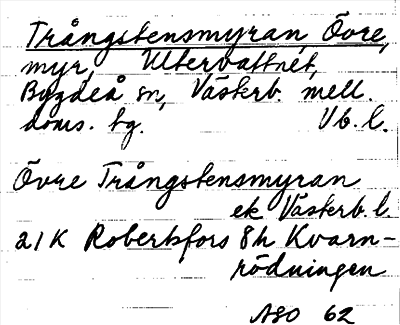 Trångstensmyran, Övre,
myr, Ultervattnet,
Bygdeå sn, Västerb. mell.
doms. tg. Vb. l.
Övre Trångstensmyran
ek Västerb. l
21K Robertsfors 8h Kvarn-
rödningen
ASO 62